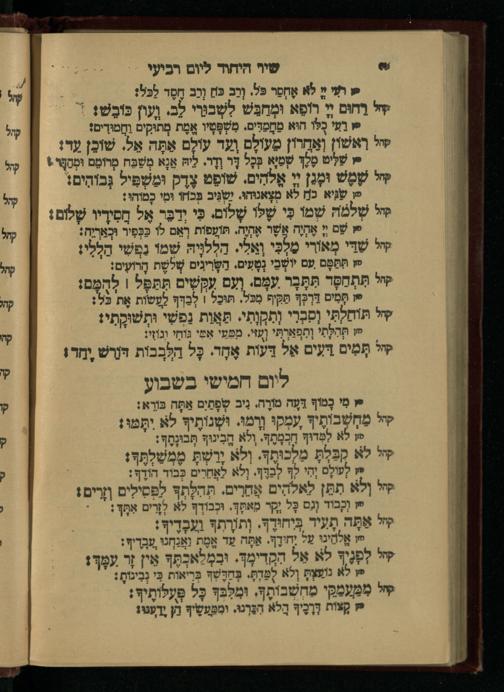 שיר היחוד ליום רביעי
חזן רֹעִי יְיָ לֹא אֶחְסַר כֹּל. וְרַב כֹּחַ וְרַב חֶסֶד לַכֹּל:
קהל רַחוּם יְיָ רוֹפֵא וּמְחַבֵּשׁ לִשְׁבוּרֵי לֵב. וְעָוֹן כּוֹבֵשׁ:
חזן רֵעִי כֻּלּוֹ הוּא מַחֲמַדִּים. מִשְׁפָּטָיו אֱמֶת מְתוּקִים וַחֲמוּדִים:
קהל רִאשׁוֹן וְאַחֲרוֹן מֵעוֹלָם וְעַד עוֹלָם אַתָּה אֵל. שׁוֹכֵן עַד:
חזן שַׁלִּיט מֶלֶךְ שְׁמַיָּא בְּכָל דָּר וְדָר. לֵיהּ אֲנָא מְשַׁבַּח מְרוֹמֵם וּמְהַדַּר:
קהל שֶׁמֶשׁ וּמָגֵן יְיָ אֱלֹהִים. שׁוֹפֵט צֶדֶק וּמַשְׁפִּיל גְּבוֹהִים:
חזן שַׂגִּיא כֹחַ לֹא מְצָאנוּהוּ. יַשְׂגִּיב בְּכֹחוֹ וּמִי כָמוֹהוּ:
קהל שְׁלֹמֹה שְׁמוֹ כִּי שֶׁלּוֹ שָׁלוֹם. כִּי יְדַבֵּר אֶל חֲסִידָיו שָׁלוֹם:
חזן שֵׁם יְיָ אֶהְיֶה אֲשֶׁר אֶהְיֶה. תּוֹעֲפוֹת רְאֵם לוֹ כַּכְּפִיר וּכְאַרְיֵה:
קהל שַׁדַּי מְאוֹרִי מַלְכִּי וְאֵלִי. הַלְלוּיָהּ שְׁמוֹ נַפְשִׁי הַלְלִי:
חזן תִּתַּמָּם עִם יוֹשְׁבֵי נְטָעִים. הַשָּׂרִיגִים שְׁלֹשֶׁת הָרוֹעִים:
קהל תִּתְחַסָּד תִּתָּבָר עִמָּם. וְעִם עִקְּשִׁים תִּתַּפָּל ׀ לְהֻמָּם:
חזן תָּמִים דַּרְכְּךָ תַּקִּיף מִכֹּל. תּוּכַל ׀ לְבַדְּךָ לַעֲשׂוֹת אֶת כֹּל:
קהל תּוֹחַלְתִּי וְסִבְרִי וְתִקְוָתִי. תַּאֲוַת נַפְשִׁי וּתְשׁוּקָתִי:
חזן תְּהִלָּתִי וְתִפְאַרְתִּי וְעֻזִּי. מִמְּעֵי אִמִּי גּוֹחִי וְגוֹזִי:
קהל תְּמִים דֵּעִים אֵל דֵּעוֹת אֶחָד. כָּל הַלְּבָבוֹת דּוֹרֵשׁ יָחַד:
ליום חמישי בשבוע
חזן מִי כָמוֹךָ דֵּעָה מוֹרֶה. נִיב שְׂפָתַיִם אַתָּה בּוֹרֵא:
קהל מַחְשְׁבוֹתֶיךָ עָמְקוּ וְרָמוּ. וּשְׁנוֹתֶיךָ לֹא יִתָּמּוּ:
חזן לֹא לִמְּדוּךָ חָכְמָתֶךָ. וְלֹא הֱבִינוּךָ תְּבוּנָתֶךָ:
קהל לֹא קִבַּלְתָּ מַלְכוּתֶךָ. וְלֹא יָרַשְׁתָּ מֶמְשַׁלְתֶּךָ:
חזן לְעוֹלָם יְהִי לְךָ לְבַדֶּךָ. וְלֹא לַאֲחֵרִים כְּבוֹד הוֹדֶךָ:
קהל וְלֹא תִתֵּן לֵאלֹהִים אֲחֵרִים. תְּהִלָּתְךָ לַפְּסִילִים וְזָרִים:
חזן וְכָבוֹד וְגַם כָּל יְקָר מֵאִתָּךְ. וּכְבוֹדְךָ לֹא לְזָרִים אִתָּךְ:
קהל אַתָּה תָּעִיד בְּיִחוּדֶךָ. וְתוֹרָתְךָ וַעֲבָדֶיךָ:
חזן אֱלֹהֵינוּ עַל יִחוּדֶךָ. אַתָּה עֵד אֱמֶת וַאֲנַחְנוּ עֲבָדֶיךָ:
קהל לְפָנֶיךָ לֹא אֵל הִקְדִּימֶךָ. וּבִמְלַאכְתְּךָ אֵין זָר עִמָּךְ:
חזן לֹא נוֹעַצְתָּ וְלֹא לֻמַּדְתָּ. בְּחַדֶּשְׁךָ בְּרִיאוֹת כִּי נְבוּנוֹתָ:
קהל מִמַּעֲמַקֵּי מַחְשְׁבוֹתֶיךָ. וּמִלִּבְּךָ כָּל פְּעֻלּוֹתֶיךָ:
חזן קְצוֹת דְּרָכֶיךָ הֲלֹא הִכַּרְנוּ. וּמִמַּעֲשֶׂיךָ הֵן יָדָעְנוּ: